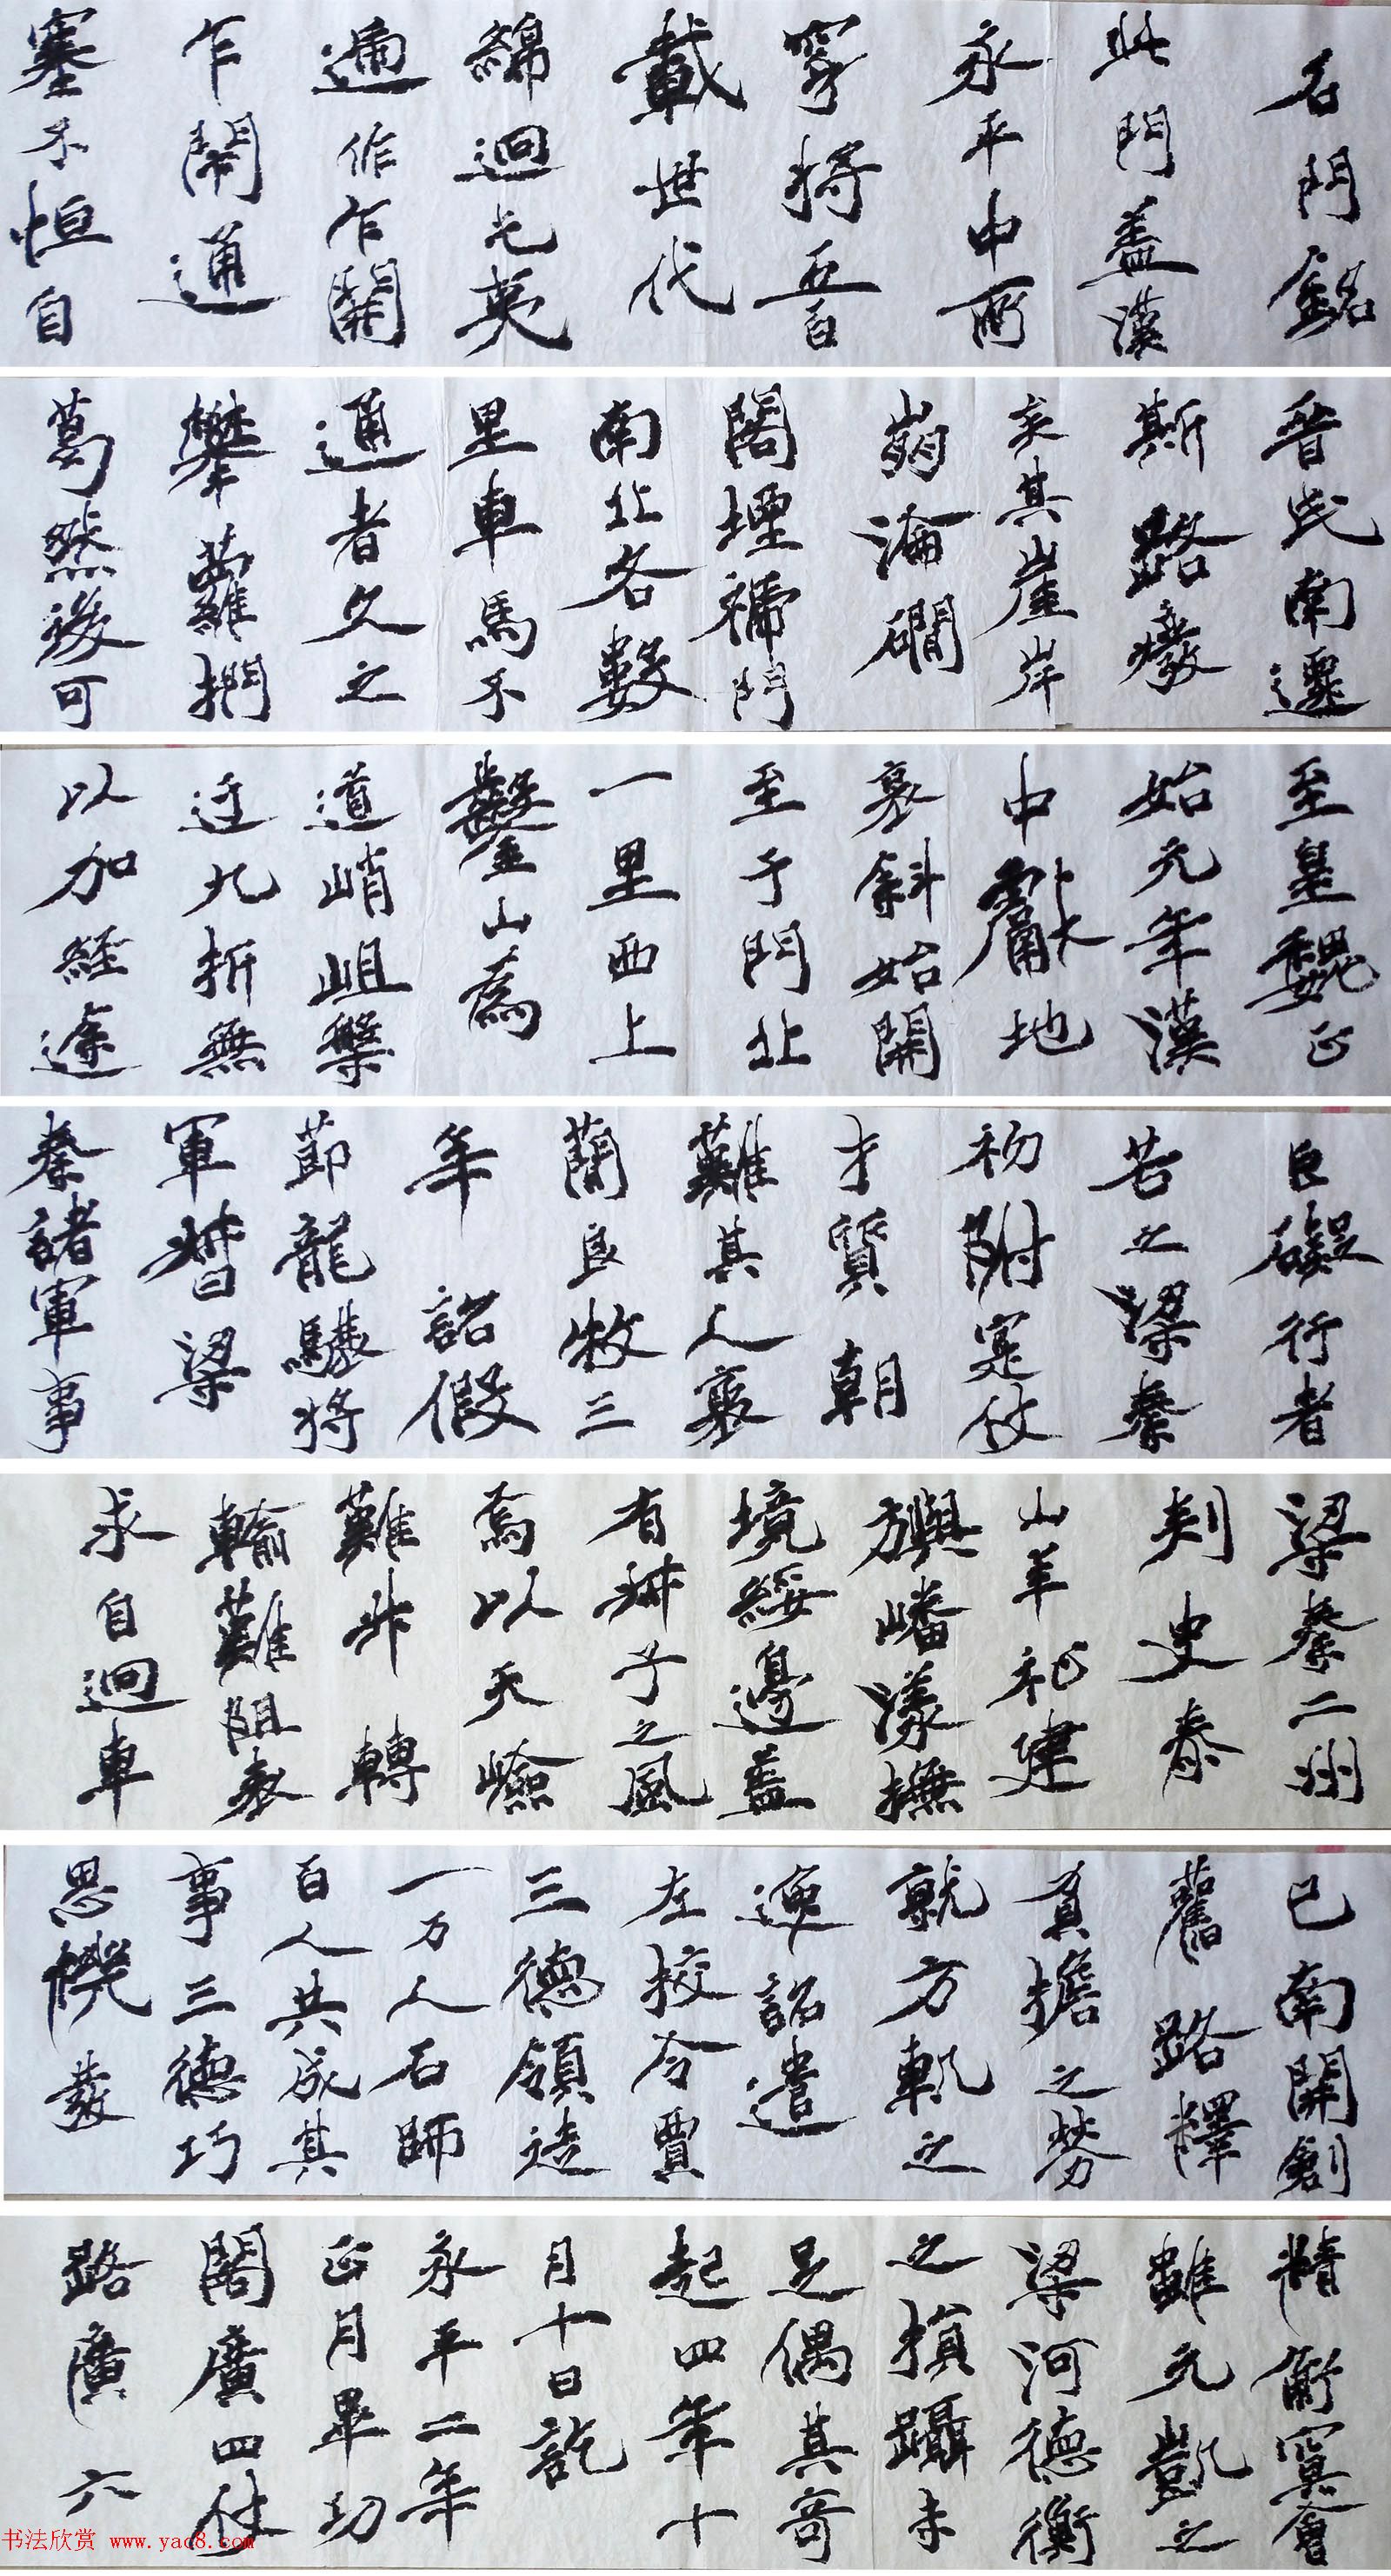 石門銘
此門蓋漢
永平中所
穿將五百
載世代
綿迴屯夷
遞作乍開
乍閉通
塞不恒自
晉氏南遷
斯路廢
矣其崖岸
崩淪磵
閣堙褫門
南北各數
里車馬不
通者久之
攀蘿捫
葛然後可
至皇魏正
始元年漢
中獻地
褒斜始開
至于門北
一里西上
鑿山為
道峭岨槃
迂九折無
以加經途
巨礙行者
苦之梁秦
初附寔仗
才賢朝
難其人褒
簡良牧三
年詔假
節龍驤將
軍督梁
秦諸軍事
梁秦二州
刺史泰
山羊祉建
旟嶓漾撫
境綏邊蓋
有叔子之風
焉以天嶮
難升轉
輸難阻表
求自迴車
已南開創
舊路釋
負擔之勞
就方軌之
逸詔遣
左校令賈
三德領徒
一万人石師
百人共成其
事三德巧
思機發
精衡冥會
雖元凱之
梁河德衡
之損躡未
足偶其奇
起四年十
月十日訖
永平二年
正月畢功
閣廣四仗
路廣六
书法欣赏 www.yac8.com